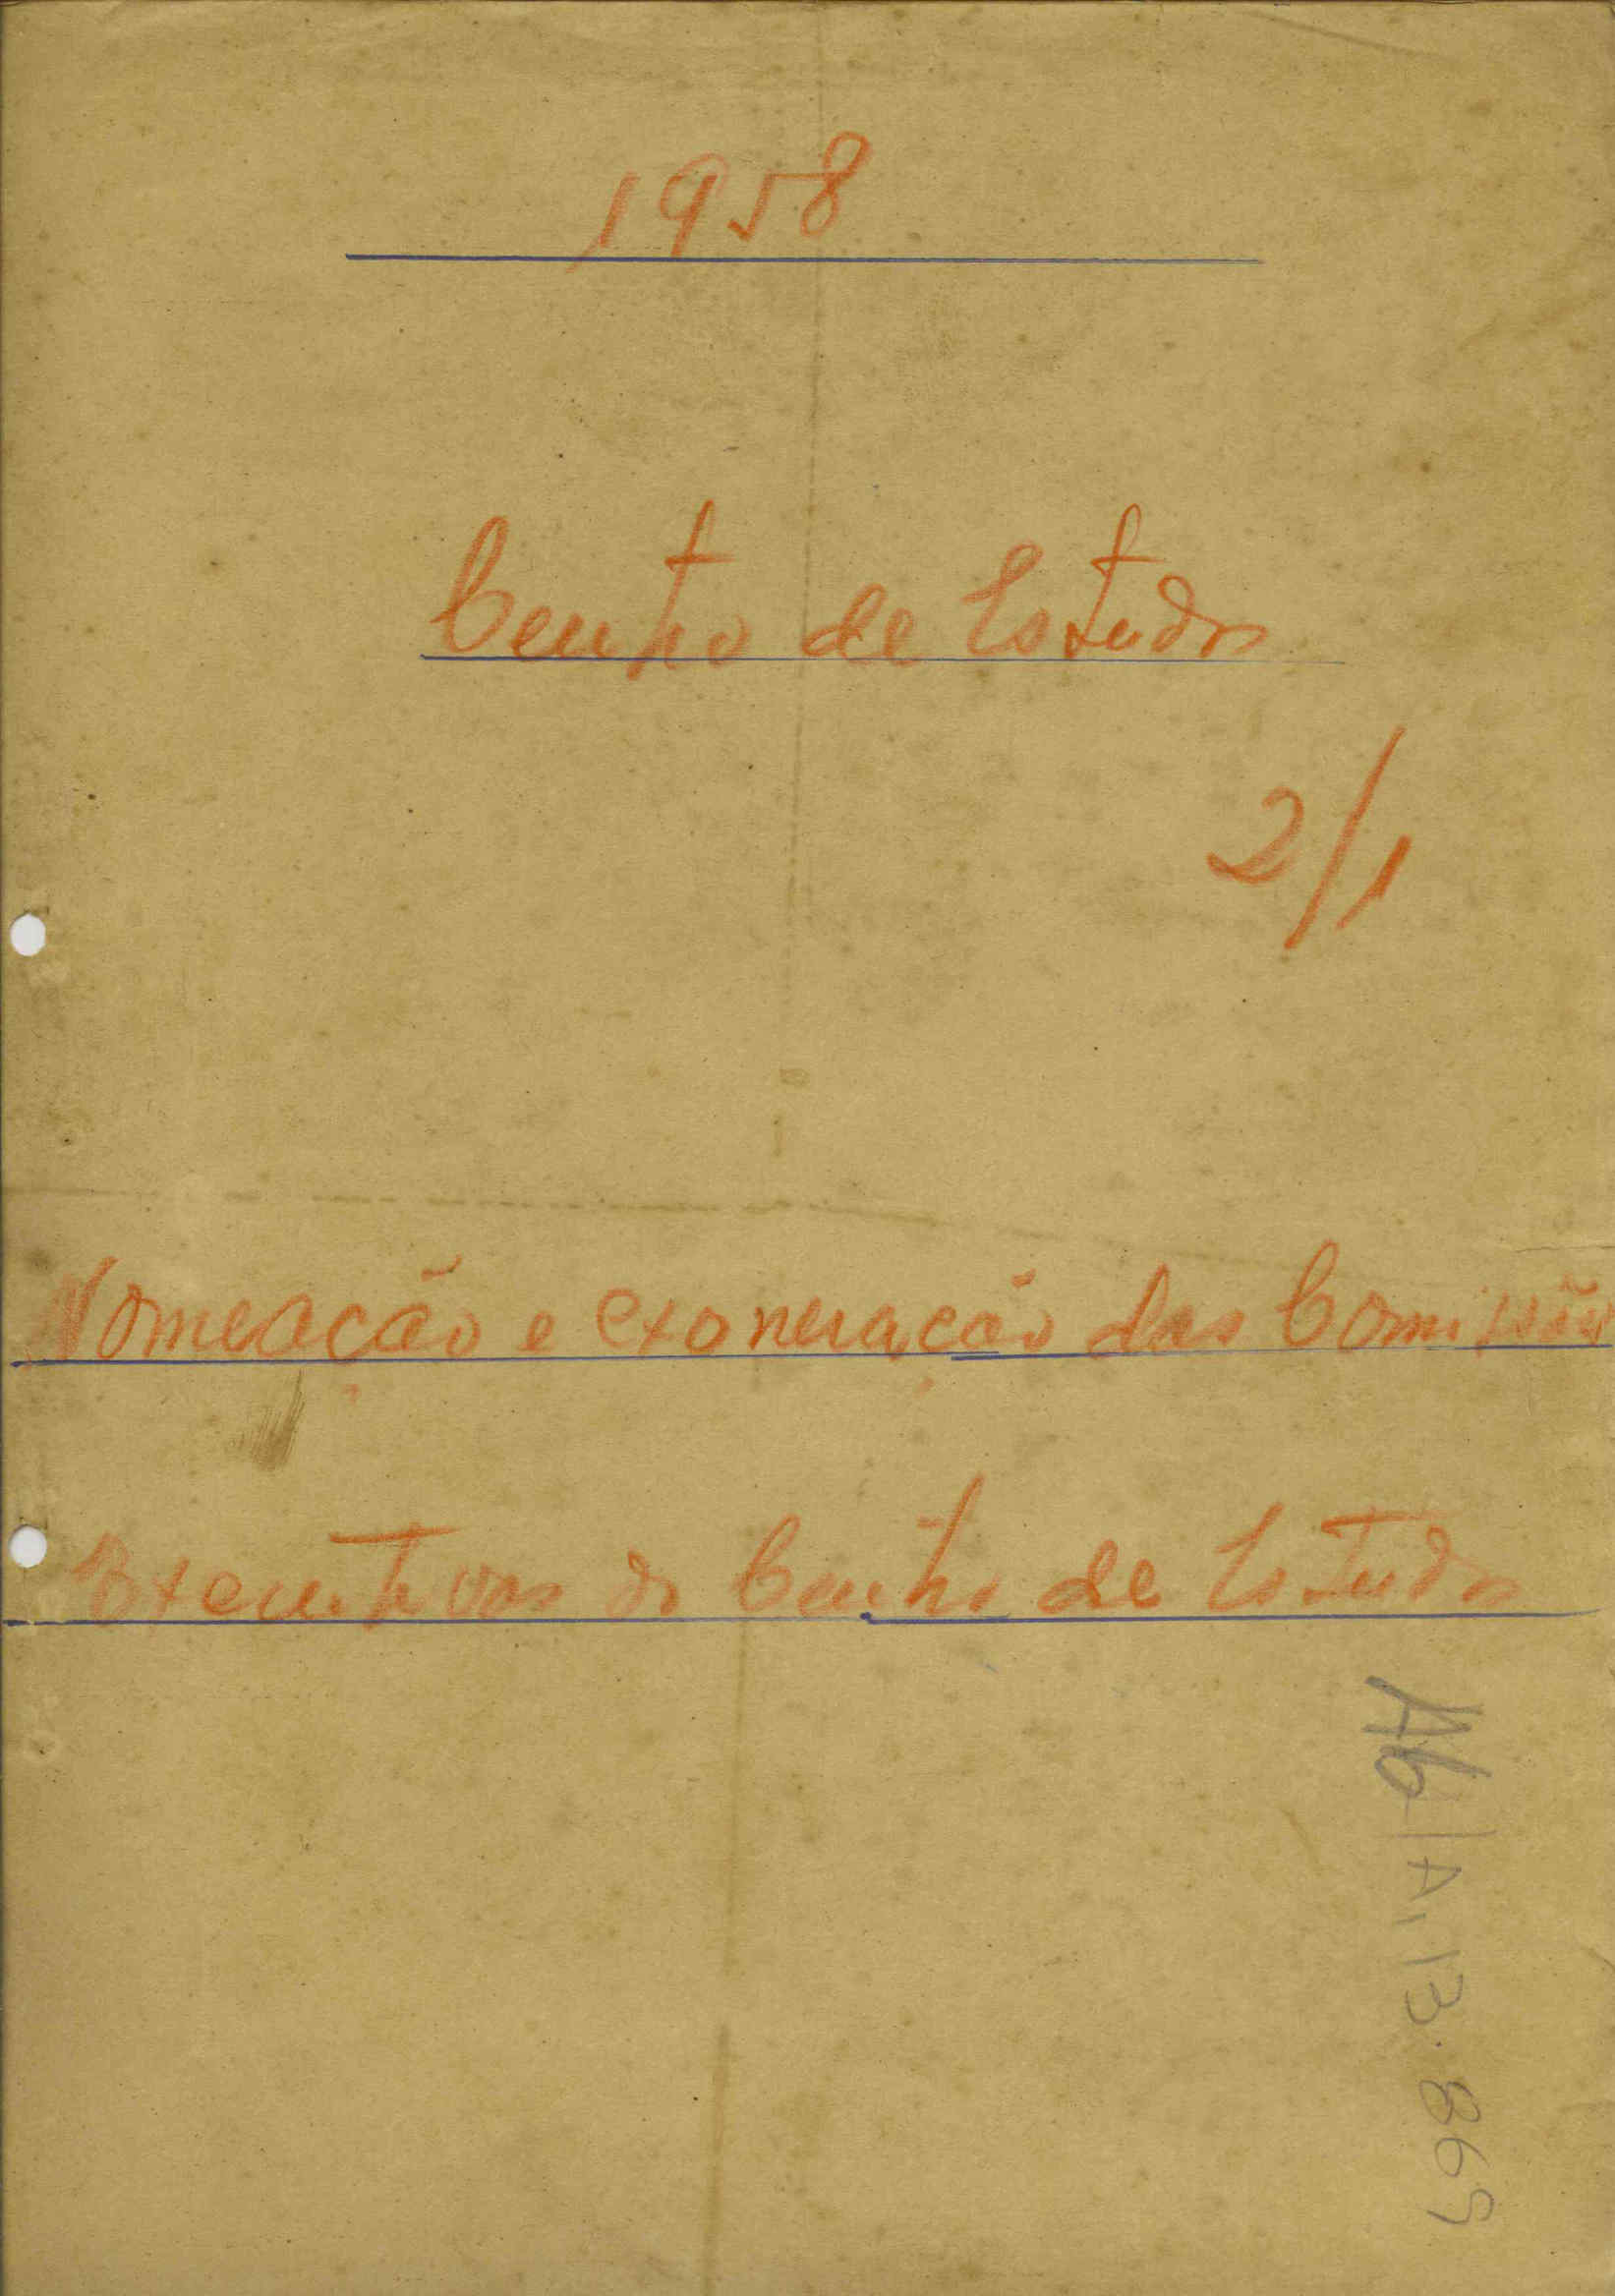 1958
Centro de Estudos
2/1
Nomeação e exoneração das Comissões
Executivas do Centro de Estudos
Ab/A, 13.869